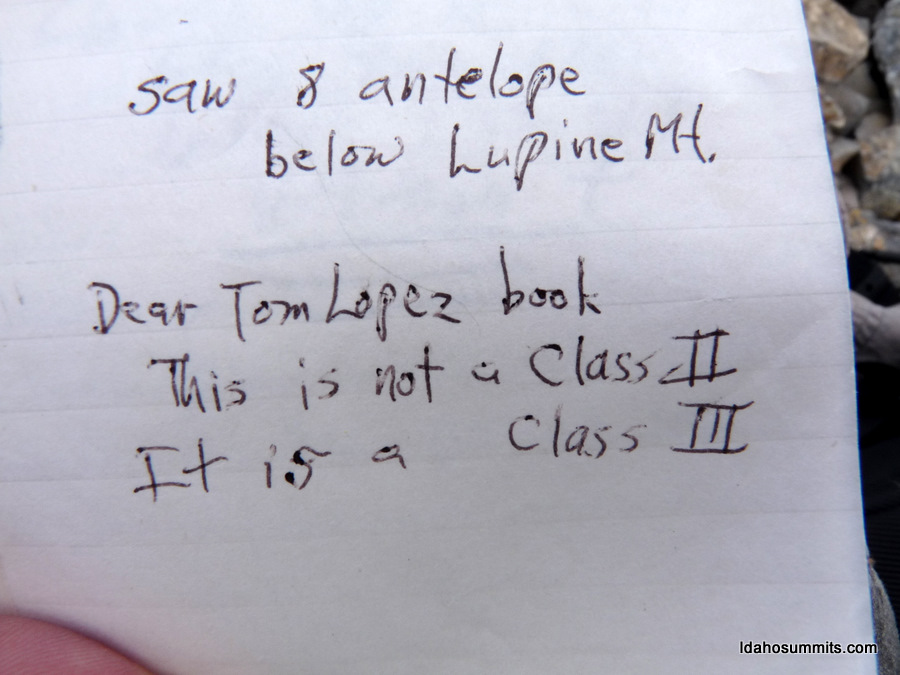 saw 8 antelope
below Lupine Mt.
Dear Tom Lopez book
This is not a Class II
It is a Class III
Idahosummits.com